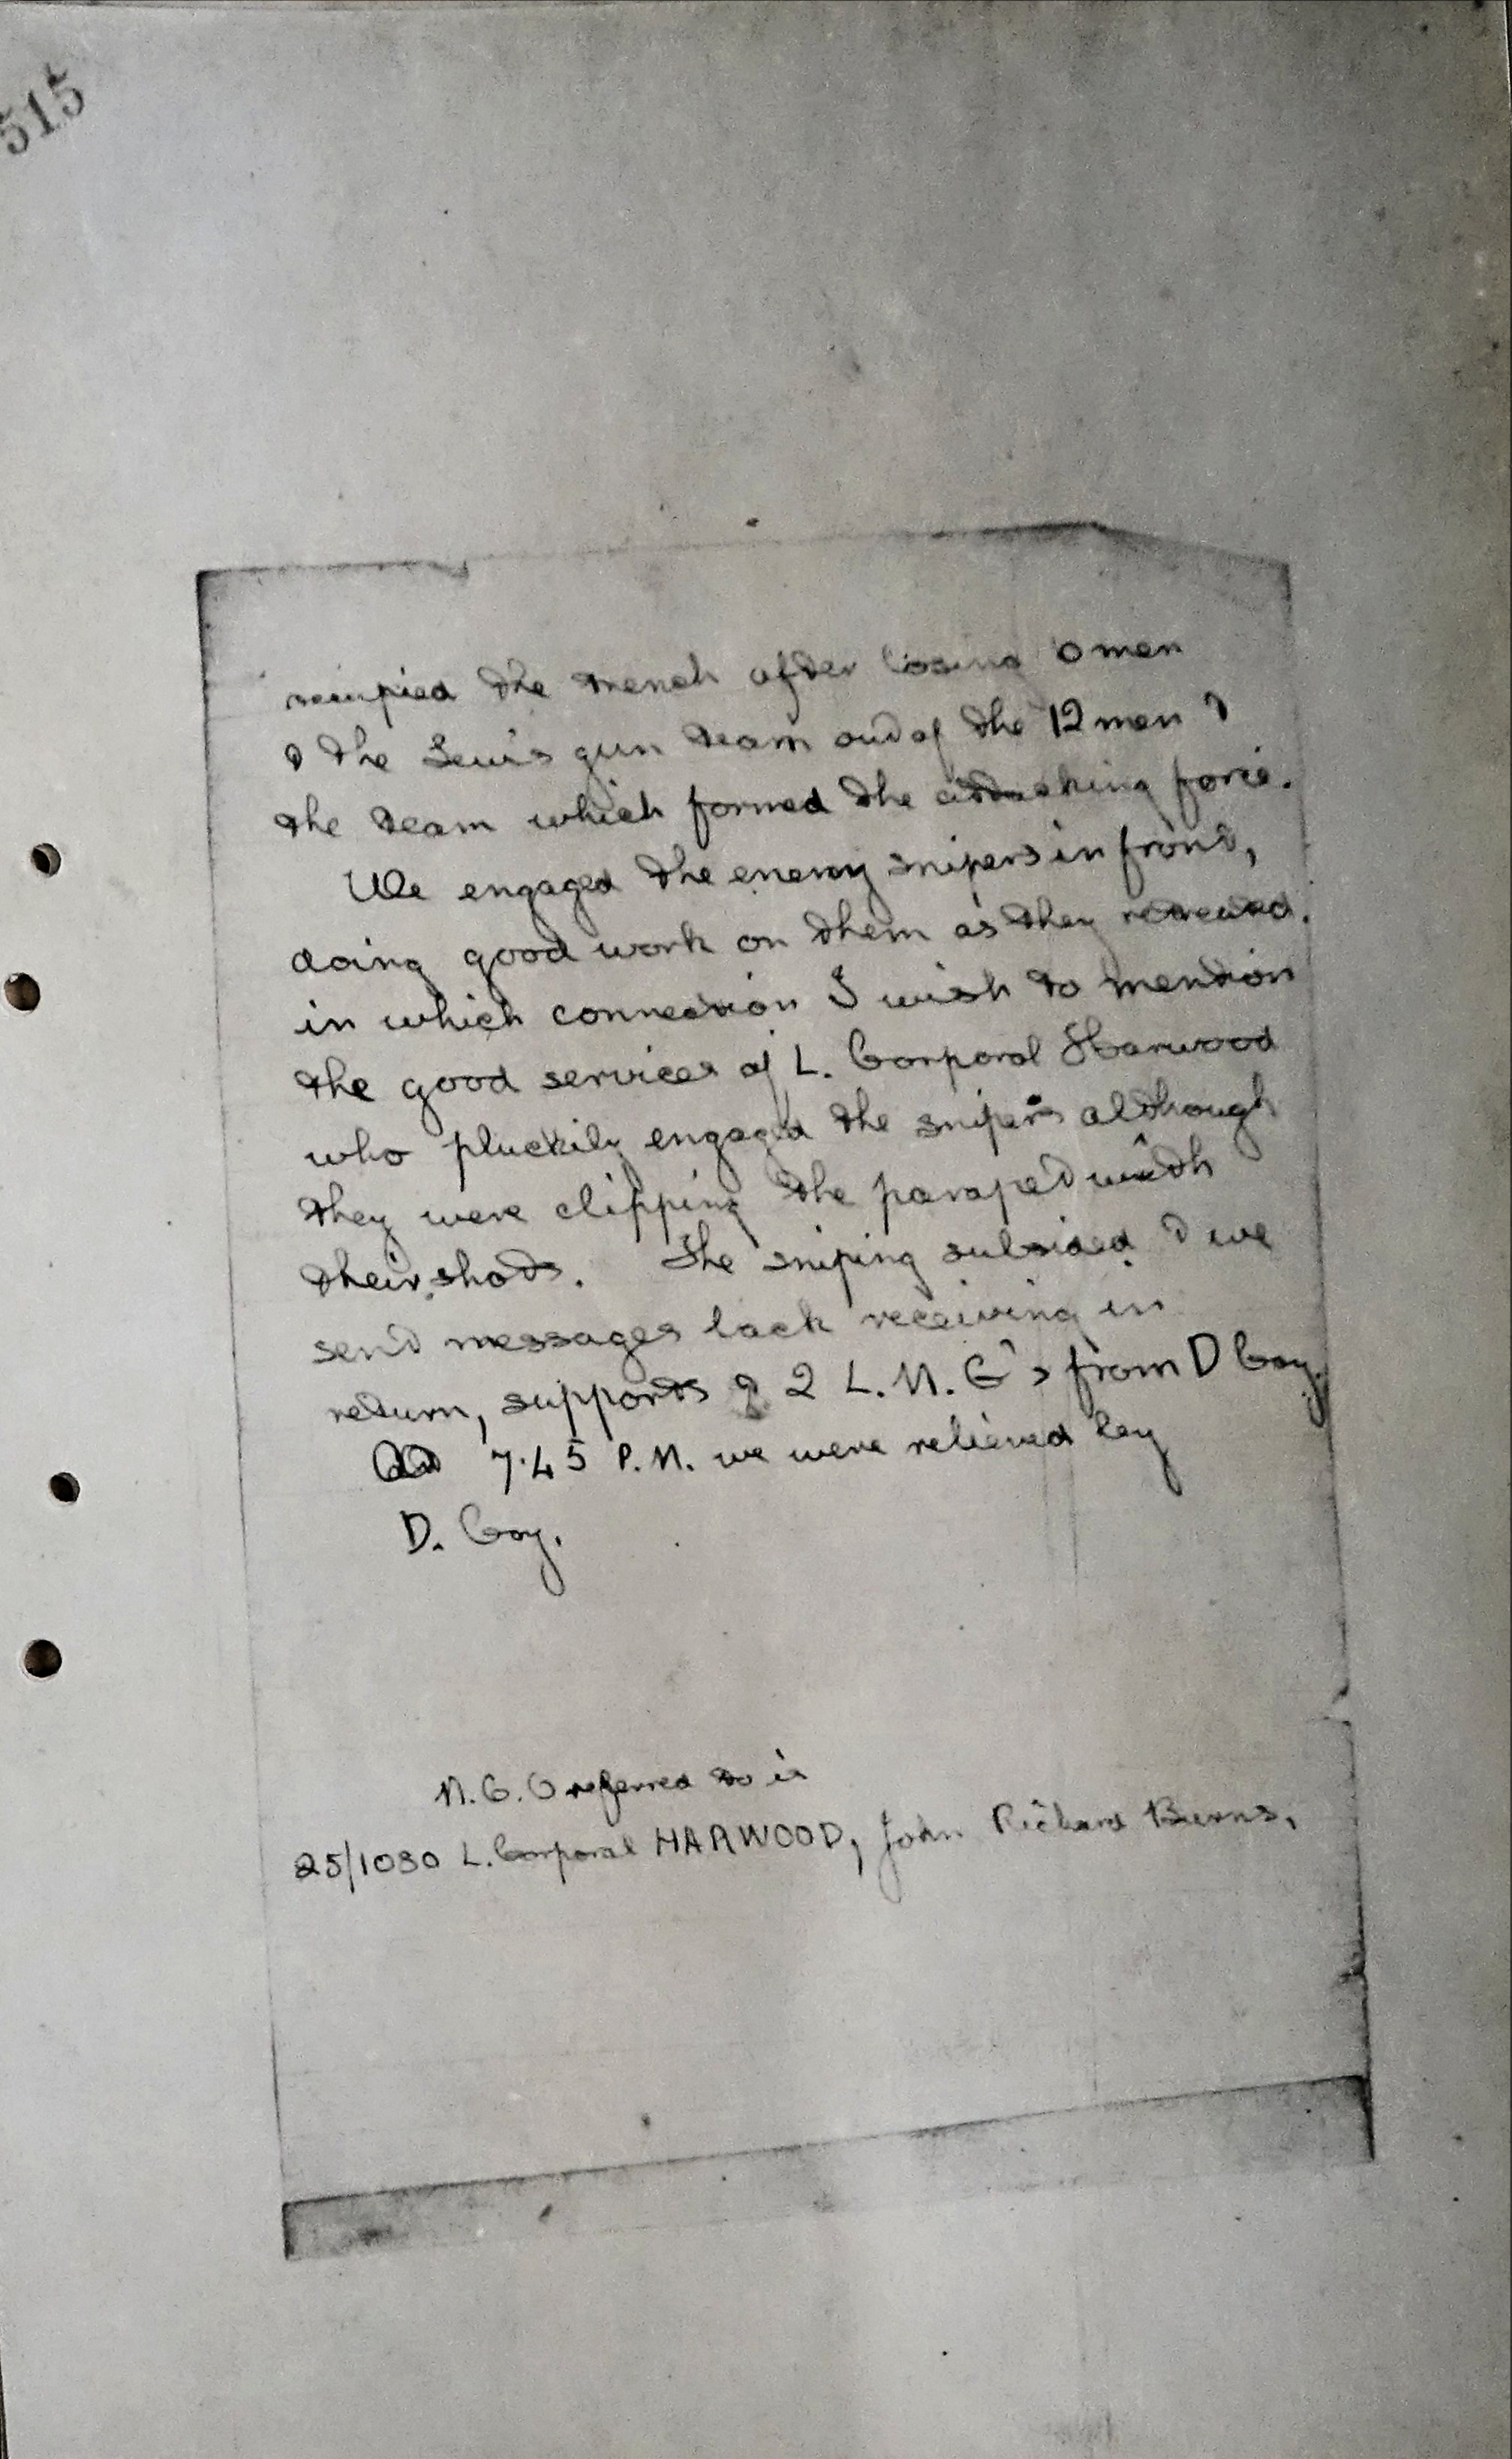 515
occupied the trench after losing 6 men
& the Lewis gun team out of the 12 men &
the team which formed the attacking force.
We engaged the enemy snipers in front,
doing good work on them as they retreated.
in which connection I wish to mention
the good services of L. Corporal Harwood
who pluckily engaged the snipers although
they were clipping the parapet with
their shots. The sniping subsided & we
sent messages back receiving in
return, supports & 2 L.M.G's from D Coy.
At 7.45 P.M. we were relieved by
D. Coy.
N.C.O referred to is
25/1030 L. Corporal HARWOOD, John Richard Burns,